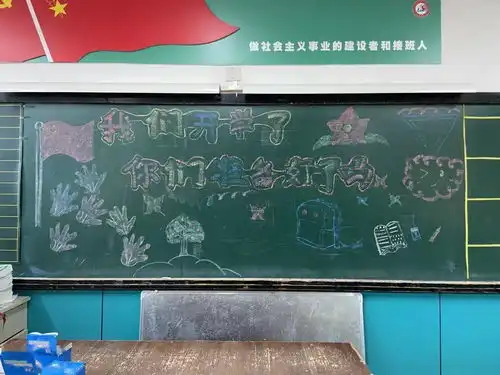 做社会主义事业的建设者和接班人
我们开学了
你们准备好了吗